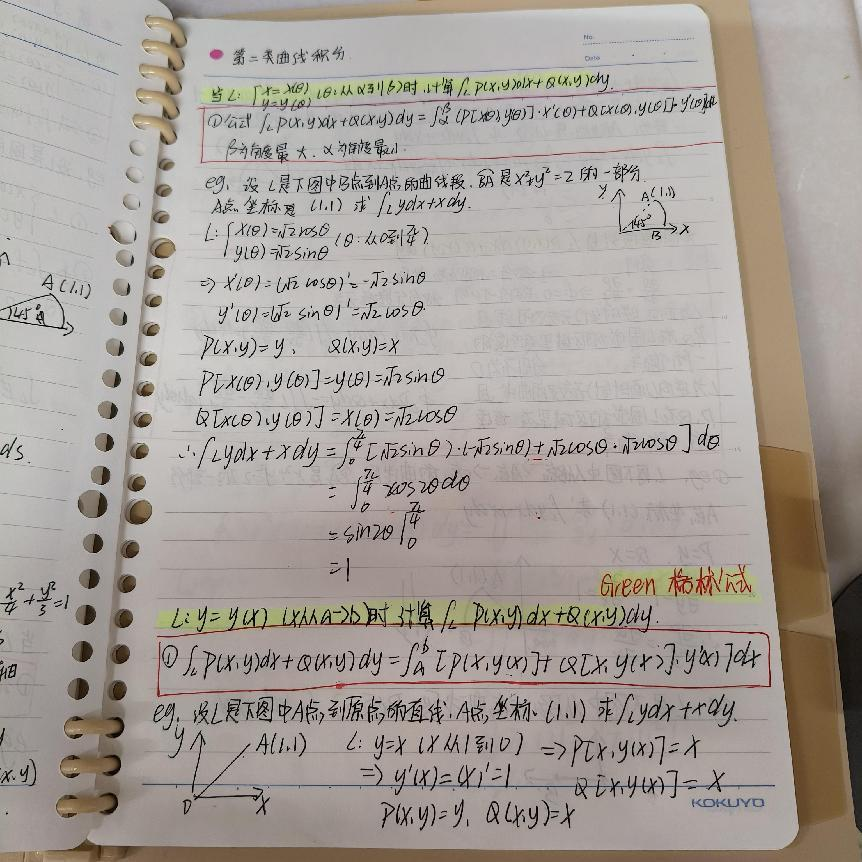 No.
Date
第二类曲线积分
当L: {x=x(θ) y=y(θ) (θ:从α到β)时,计算∫L P(x,y)dx+Q(x,y)dy.
①公式 ∫L P(x,y)dx+Q(x,y)dy=∫α^β {P[x(θ),y(θ)]·x'(θ)+Q[x(θ),y(θ)]·y'(θ)}dθ
β为角度最大、α为角度最小.
eg. 设L是下图中B点到A点的曲线段, BA是x²+y²=2的一部分
A点坐标是(1,1) 求∫L ydx+xdy.
y A(1,1)
45°
B x
L:{x(θ)=√2cosθ
y(θ)=√2sinθ (θ:从0到π/4)
⇒x'(θ)=(√2cosθ)'=-√2sinθ
y'(θ)=(√2 sinθ)'=√2cosθ.
P(x,y)=y, Q(x,y)=x
P[x(θ),y(θ)]=y(θ)=√2sinθ
Q[x(θ),y(θ)]=x(θ)=√2cosθ
∴∫L ydx+xdy=∫0^π/4 [√2sinθ)·(-√2sinθ)+√2cosθ·√2cosθ]dθ
=∫0^π/4 2cos2θdθ
=sin2θ|0^π/4
=1
Green 格林公式
L:y=y(x) (x从a→b)时 计算∫L P(x,y)dx+Q(x,y)dy.
①∫L P(x,y)dx+Q(x,y)dy=∫a^b [P(x,y(x)]+Q[x,y(x)]·y'(x)]dx
eg. 设L是下图中A点到原点的直线.A点坐标(1,1) 求∫L ydx+xdy.
y A(1,1)
O x
L: y=x (x从1到0) ⇒P[x,y(x)]=x
⇒y'(x)=(x)'=1 Q[x,y(x)]=x
P(x,y)=y, Q(x,y)=x
KOKUYO
A(1,1)
45°
ds.
x²/4+y²/3=1
(x,y)